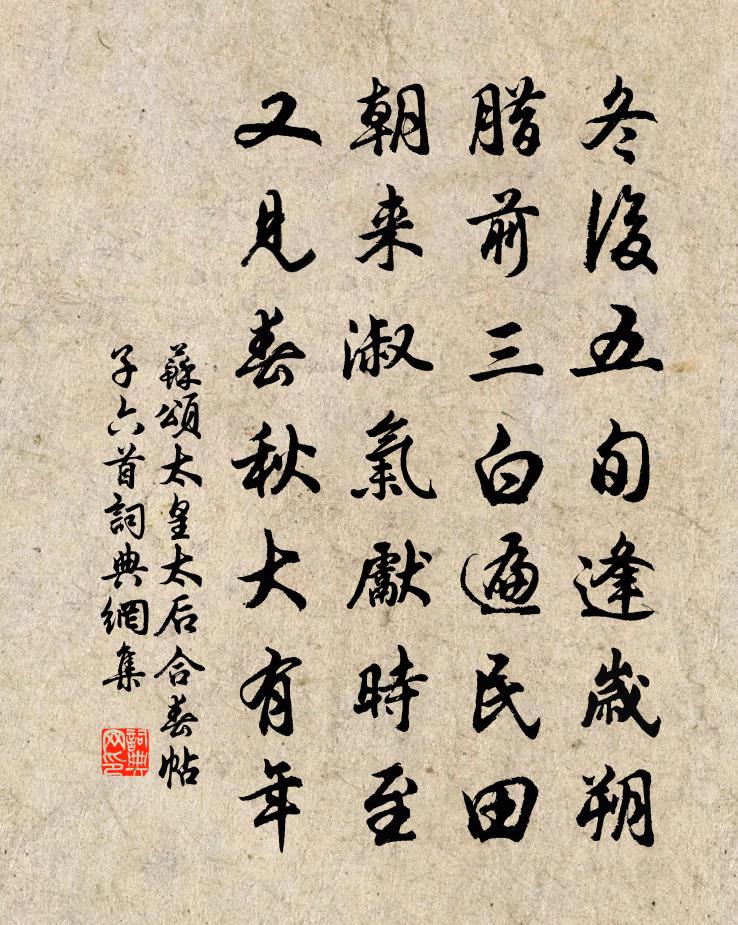 冬後五旬逢歲朔
腊前三白遍民田
朝来淑氣獻時至
又見春秋大有年
蘇頌太皇太后合春帖
子六首詞典網集
詞典网印